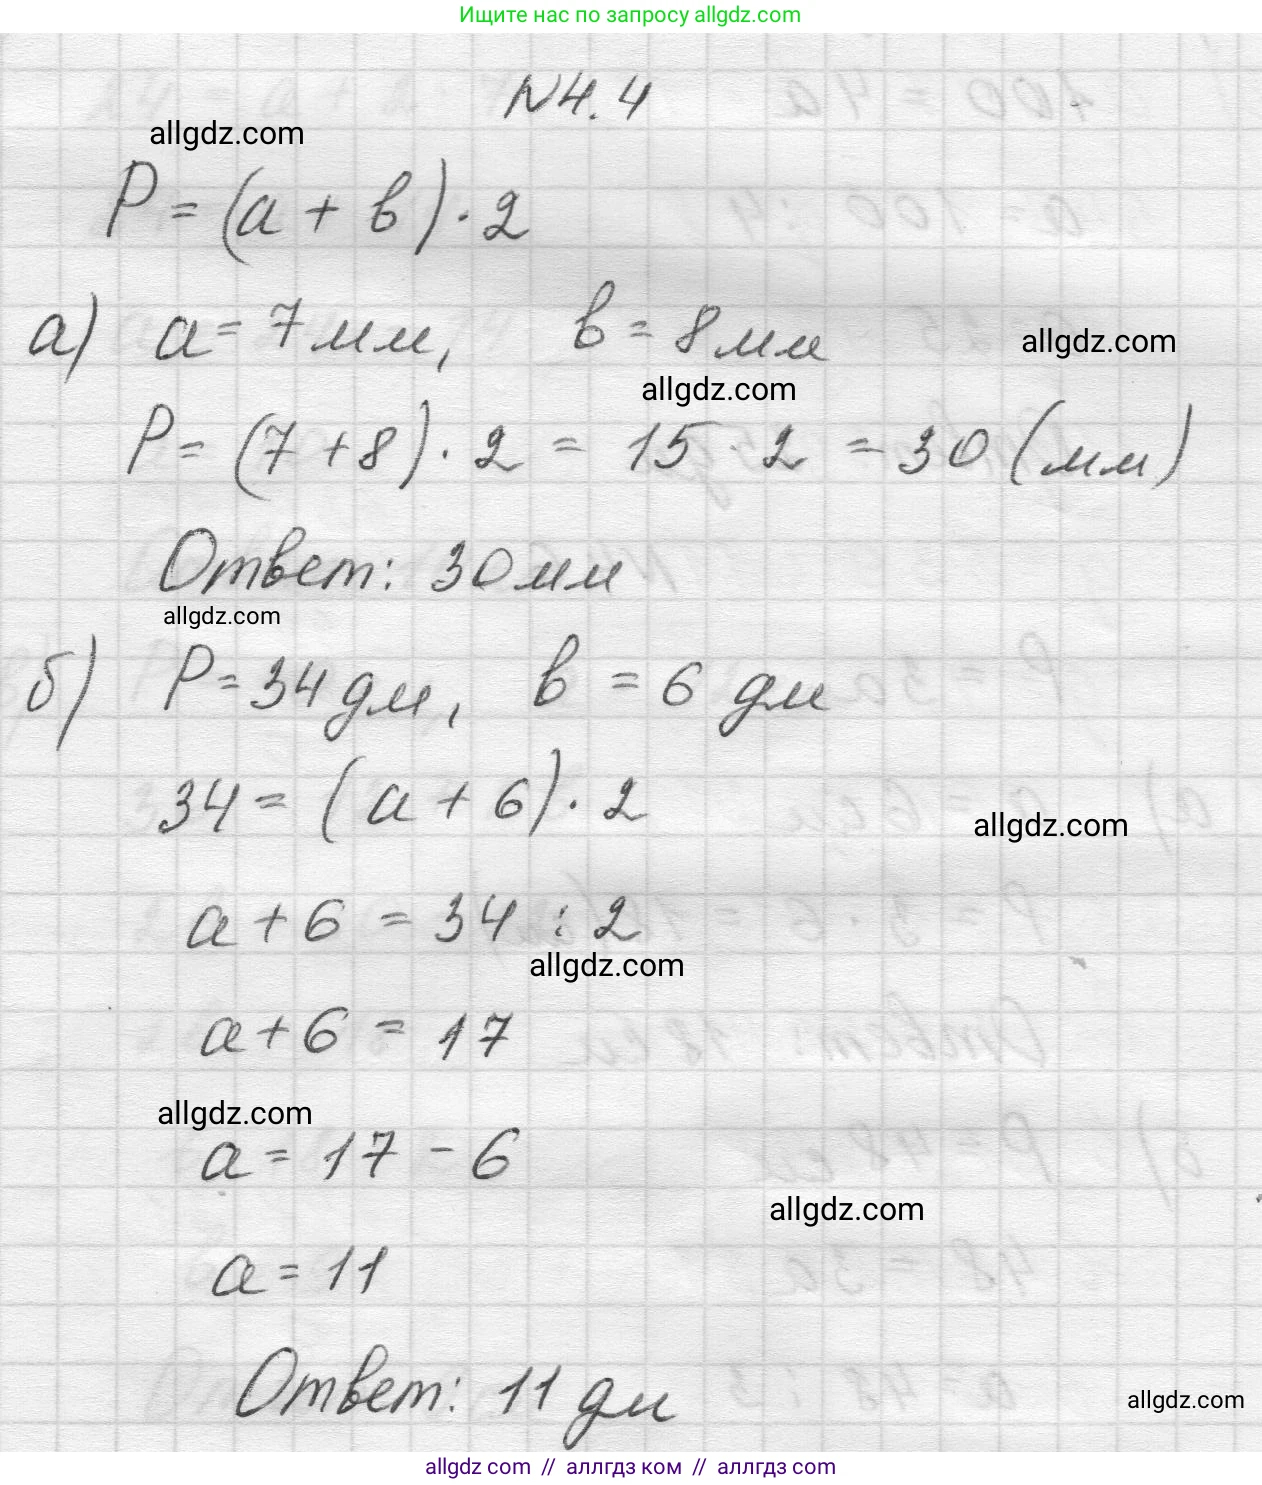 Ищите нас по запросу allgdz.com
N4.4
allgdz.com
P = (a + b) · 2
а) a = 7 мм, b = 8 мм
allgdz.com
allgdz.com
P = (7 + 8) · 2 = 15 · 2 = 30 (мм)
Ответ: 30 мм
allgdz.com
б) P = 34 дм, b = 6 дм
34 = (a + 6) · 2
allgdz.com
a + 6 = 34 : 2
allgdz.com
a + 6 = 17
allgdz.com
a = 17 - 6
allgdz.com
a = 11
Ответ: 11 дм
allgdz.com
allgdz com // аллгдз ком // аллгдз com